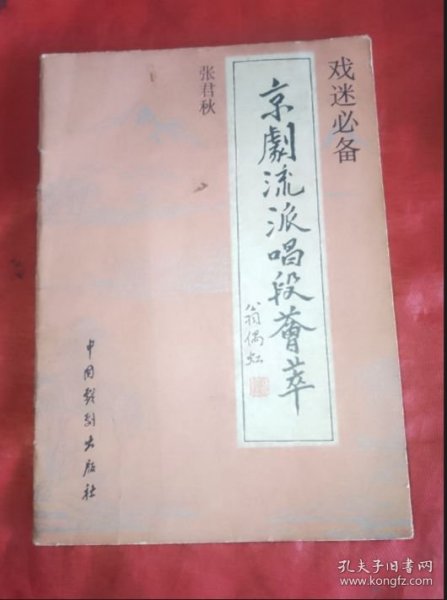 戏迷必备
京劇流派唱段薈萃
翁偶虹
张君秋
中国戏剧出版社
孔夫子旧书网
book.kongfz.com